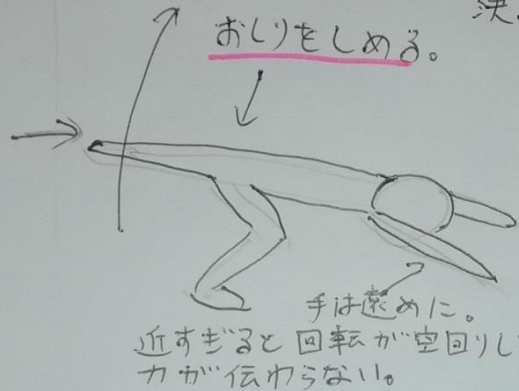 決
おしりをしめる。
手は遠めに。
近すぎると回転が空回りし
力が伝わらない。